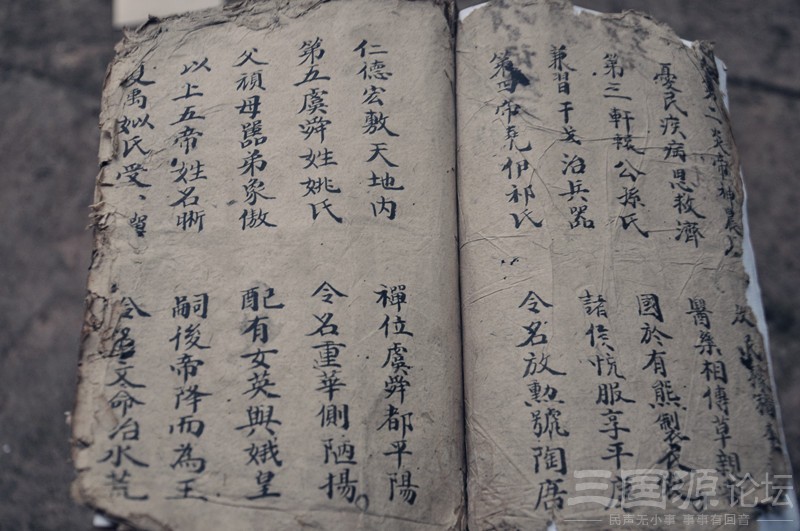 二炎帝神農
憂民疾病思救濟 醫藥相傳草親
第三軒轅公孫氏 國於有熊製衣
兼習干戈治兵器 諸侯悅服享平
第四帝堯伊祁氏 令名放勲號陶唐
仁德宏敷天地内 禪位虞舜都平陽
第五虞舜姓姚氏 令名重華側陋揚。
父頑母嚚弟象傲 配有女英與娥皇
以上五帝姓名晰 嗣後帝降而為王
夏禹姒氏受、 令名文命治水荒
论坛
民声无小事 事事有回音